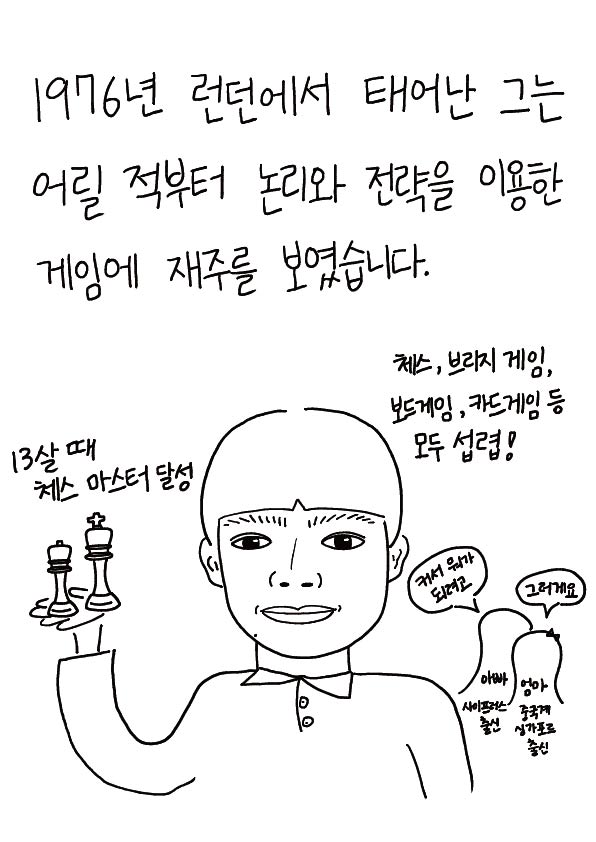 1976년 런던에서 태어난 그는
어릴 적부터 논리와 전략을 이용한
게임에 재주를 보였습니다.
체스, 브리지 게임,
보드게임, 카드게임 등
모두 섭렵!
13살 때
체스 마스터 달성
커서 뭐가
되려고
그러게요
아빠
사이프러스
출신
엄마
중국계
싱가포르
출신